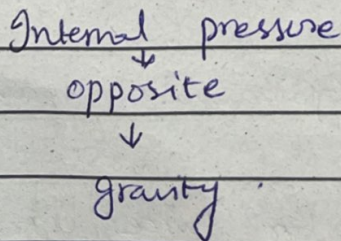 Internal pressure
↓
opposite
↓
gravity.